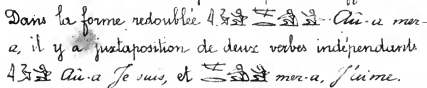 Dans la forme redoublée Aù-a mer-
a, il y a juxtaposition de deux verbes indépendants
Aù-a Je suis, et mer-a, J'aime.